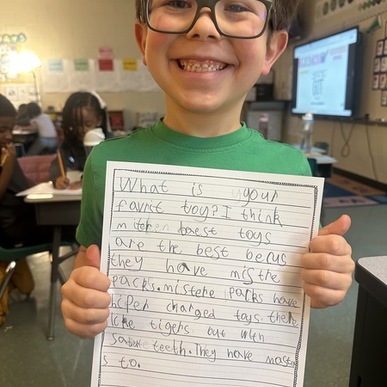 What is your
favrit toy? I think
toys
are the best becus
they have mistre
packs. mistere packs have
hiper charged toys. there
like tigers but with
teeth. They have
s to.